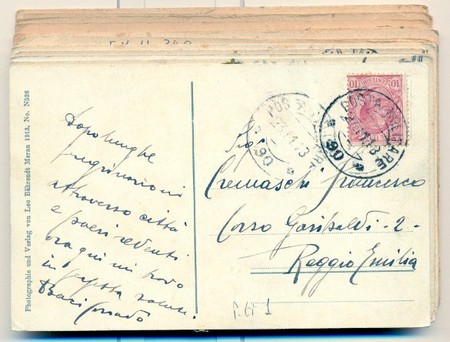 Photographie und Verlag von Leo Bährendt Meran 1913, No. N326
Dopo lunghe
peregrinazioni
attraverso città
e paesi redenti
ora qui mi trovo
in perfetta salute.
Baci Corrado
Sig.
Cremaschi Francesco
Corso Garibaldi - 2 -
Reggio Emilia
POSTA MILITARE
90
POSTA MILITARE
90
10
10